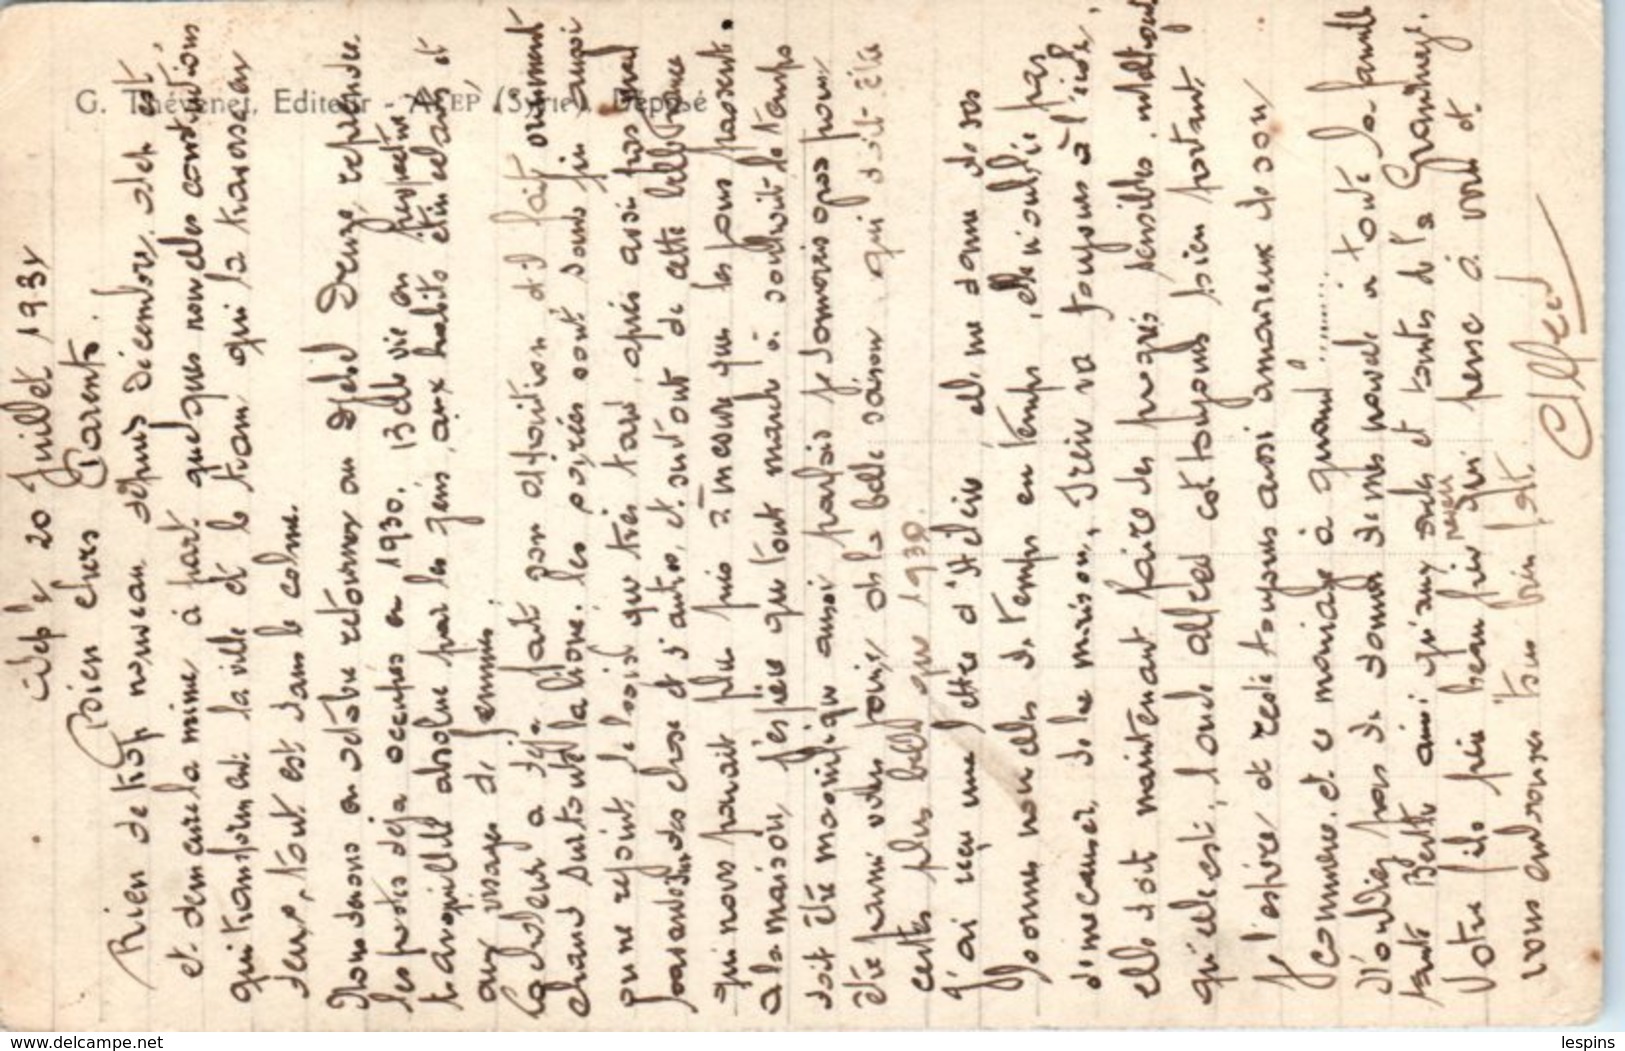 Alep le 20 Juillet 1931
Bien chers Parents.
Rien de trop nouveau depuis Decembre. Alep est,
et demeure la même à part quelques nouvelles constructions
qui transforment la ville et le tram qui la traverse en
deux, tout est dans le calme.
Nous devons en octobre retourner au Djebel Druze reprendre
les postes déjà occupés en 1930. 13 de vie en perspective
tranquillité absolue par les gens, aux habits étincelants et
aux visages de femmes
La chaleur a déjà fait son apparition, il fait vraiment
chaud surtout la soirée. les soirées sont sans fin aussi
on ne rejoint le logis que très tard, après avoir pas mal
passer des choses et d'autres, et surtout de cette belle France
qui nous paraît plus près à mesure que les jours passent.
à la maison, j'espère que tout marche à souhait. le temps
doit être magnifique aussi parfois je voudrais pour
être parmi vous jouir de la belle saison qui doit être
certes plus belle que 1930.
J'ai reçu une lettre d'Hélène elle me donne de ses
bonnes nouvelles de temps en temps, elle n'oublie pas
de me causer de la maison, Irène va toujours à l'école,
elle doit maintenant faire des progrès sensibles, intelligente
qu'elle est, l'oncle alfred est toujours bien portant
je l'espère et reste toujours aussi amoureux de son
commerce, et ce mariage à quand ........
N'oubliez pas de donner de mes nouvelles à toute la famille
tante Berthe ainsi qu'aux oncles et tantes de la Grandrege.
Votre fils frère beau frère neveu qui pense à vous et
vous embrasse tous bien fort.
Alfred
G. Thévenet, Editeur - ALEP (Syrie). Déposé
www.delcampe.net
lespins